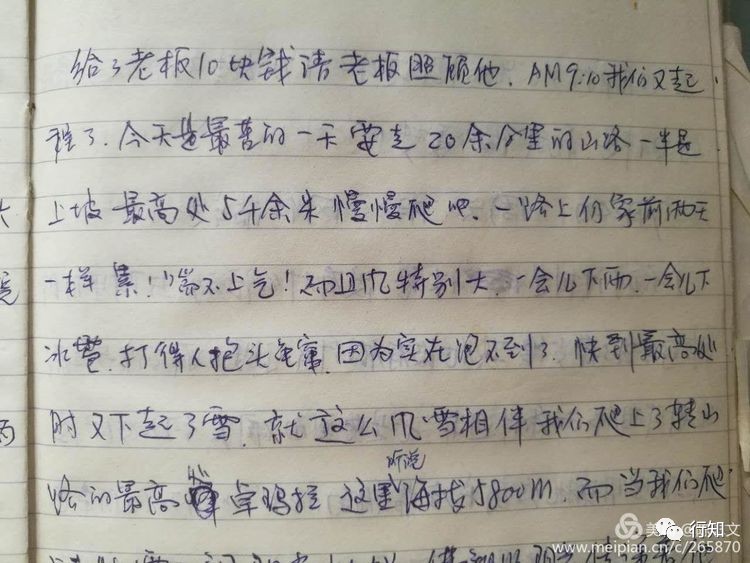 给了老板10块钱请老板照顾他. AM9:10我们又起
程了. 今天是最苦的一天要走20余公里的山路一半是
上坡 最高处5千余米 慢慢爬吧. 一路上仍象前两天
一样 累! 喘不上气! 而且风特别大. 一会儿下雨. 一会儿下
冰雹. 打得人抱头 因为实在跑不动了. 快到最高处
时又下起了雪. 就这么风雪相伴我们爬上了转山
听说
路的最高 卓玛拉 这里海拔5800m. 而当我们爬
美 行知文
www.meipian.cn/c/265870